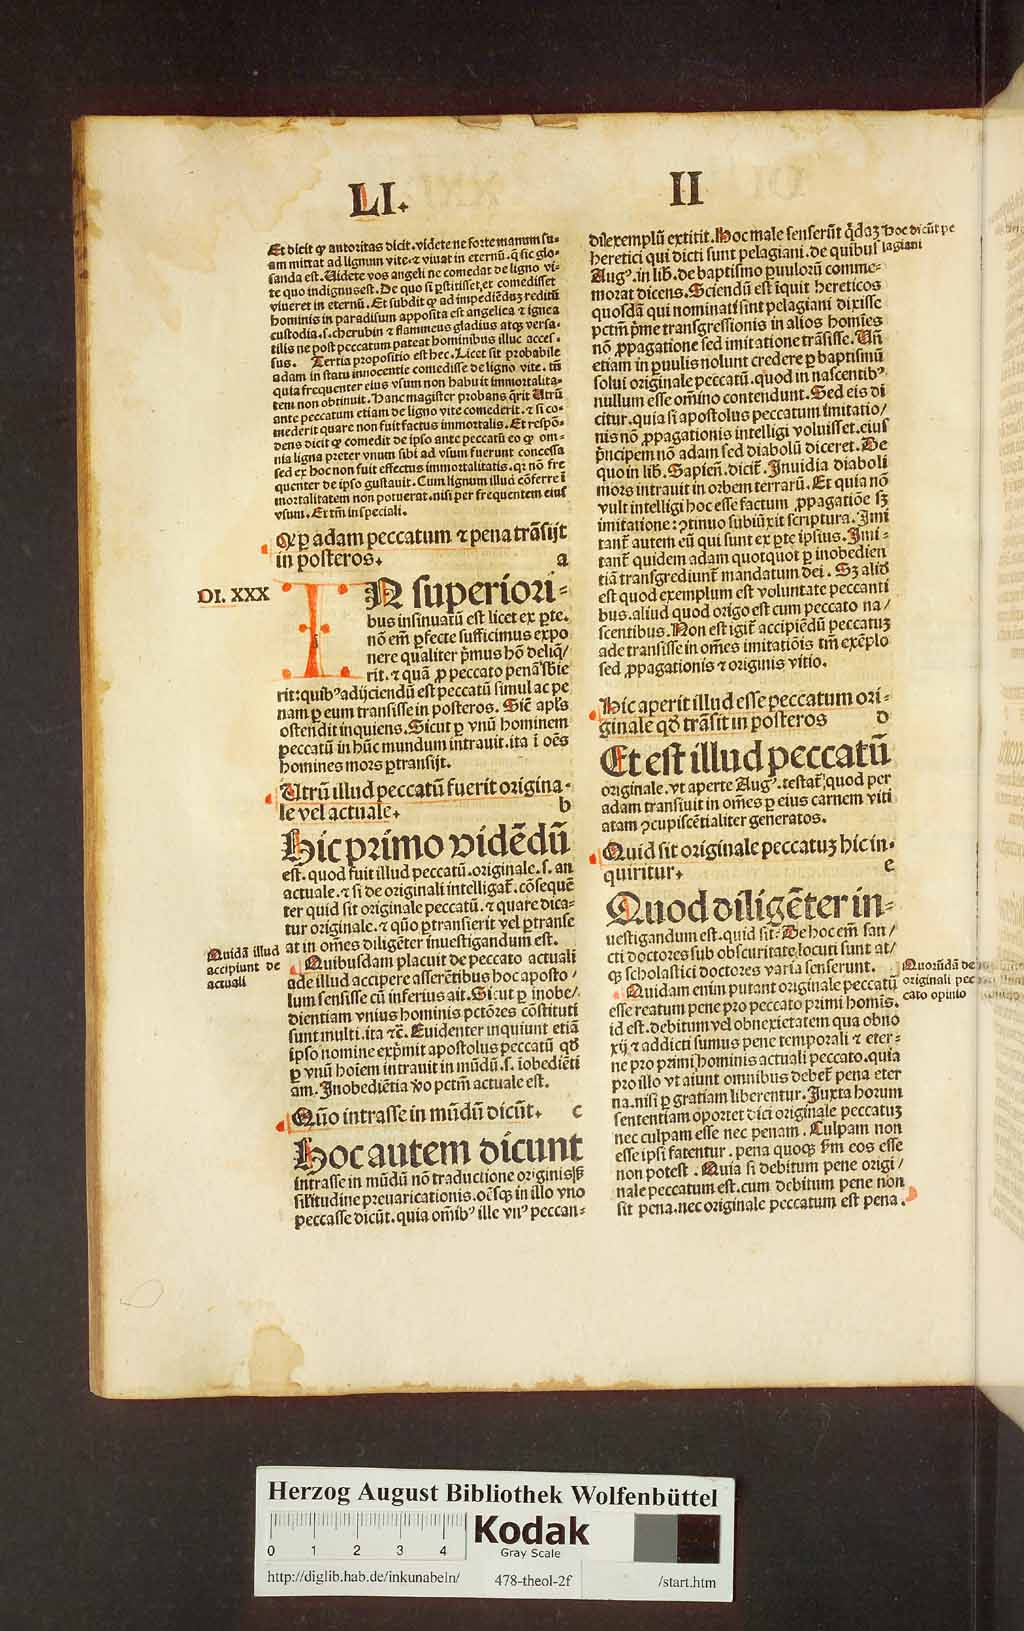 LI. II
Et dicit ꝙ autoritas dicit. videte ne forte manum su-
am mittat ad lignum vite. ⁊ viuat in eternū. q̄ sic glo-
sanda est. Uidete vos angeli ne comedat de ligno vi-
te quo indignus est. De quo si ꝑstitisset, et comedisset
viueret in eternū. Et subdit ꝙ ad impediēduꝫ reditū
hominis in paradisum apposita est angelica ⁊ ignea
custodia. s. cherubin ⁊ flammeus gladius atqꝫ versa-
tilis ne post peccatum pateat hominibus illuc acces-
sus. Tertia propositio est hec. Licet sit probabile
adam in statu innocentie comedisse de ligno vite. tn̄
quia frequenter eius vsum non habuit immortalita-
tem non obtinuit. Hanc magister probans q̄rit Utrū
ante peccatum etiam de ligno vite comederit. ⁊ si co-
mederit quare non fuit factus immortalis. Et respō-
dens dicit ꝙ comedit de ipso ante peccatū eo ꝙ om-
nia ligna preter vnum sibi ad vsum fuerunt concessa
sed ex hoc non fuit effectus immortalitatis. qꝛ nō fre
quenter de ipso gustauit. Cum lignum illud cōferre ī
mortalitatem non potuerat. nisi per frequentem eius
vsum. Et tm̄ in speciali.
Qꝙ ꝑ adam peccatum ⁊ pena trāsijt
in posteros. a
DI. XXX
IN superiori-
bus insinuatū est licet ex ꝑte.
nō em̄ ꝑfecte sufficimus expo
nere qualiter p̄mus hō deliq̄/
rit. ⁊ quā ꝓ peccato penā sbie
rit: quibꝰ adijciendū est peccatū simul ac pe
nam ꝑ eum transisse in posteros. Sic̄ apl's
ostendit inquiens. Sicut ꝑ vnū hominem
peccatū in hūc mundum intrauit. ita ī oēs
homines mors ꝑtransijt.
Utrū illud peccatū fuerit origina-
le vel actuale. b
Hic primo vidēdū
est. quod fuit illud peccatū. originale. s. an
actuale. ⁊ si de originali intelligat̄. cōsequē
ter quid sit originale peccatū. ⁊ quare dica-
tur originale. ⁊ quō ꝑtransierit vel ꝑtranse
at in om̄es diligēter inuestigandum est.
Quidā illud
accipiunt de
actuali
Quibusdam placuit de peccato actuali
ade illud accipere asserētibus hoc aposto/
lum sensisse cū inferius ait. Sicut ꝑ inobe/
dientiam vnius hominis pctōres cōstituti
sunt multi. ita ⁊c̄. Euidenter inquiunt etiā
ipso nomine exp̄mit apostolus peccatū qd̄
ꝑ vnū hoīem intrauit in mūdū. s. īobediēti
am. Inobediētia v̄o pctm̄ actuale est.
Quō intrasse in mūdū dicūt. c
Hoc autem dicunt
intrasse in mūdū nō traductione originis sꝫ
sil'itudine preuaricationis. oēsqꝫ in illo vno
peccasse dicūt. quia om̄ibꝰ ille vnꝰ peccan-
di exemplū extitit. Hoc male senserūt q̄daꝫ
heretici qui dicti sunt pelagiani. de quibus
Hoc dicūt pe
lagiani
Augꝰ. in lib̄. de baptismo ꝑuulorū comme-
morat dicens. Sciendū est īquit hereticos
quosdā qui nominati sint pelagiani dixisse
pctm̄ p̄me transgressionis in alios hom̄ies
nō ꝓpagatione sed imitatione trāsisse. Un̄
etiam in ꝑuulis nolunt credere ꝑ baptismū
solui originale peccatū. quod in nascentibꝰ
nullum esse om̄ino contendunt. Sed eis di
citur. quia si apostolus peccatum imitatio/
nis nō ꝓpagationis intelligi voluisset. eius
p̄ncipem nō adam sed diabolū diceret. De
quo in lib̄. Sapien̄. dicit̄. Inuidia diaboli
mors intrauit in orbem terrarū. Et quia nō
vult intelligi hoc esse factum ꝓpagatiōe sꝫ
imitatione: ꝯtinuo subiūxit scriptura. Imi
tant̄ autem eū qui sunt ex ꝑte ipsius. Imi-
tant̄ quidem adam quotquot ꝑ inobedien
tiā transgrediunt̄ mandatum dei. Sꝫ aliud
est quod exemplum est voluntate peccanti
bus. aliud quod origo est cum peccato na/
scentibus. Non est igit̄ accipiēdū peccatuꝫ
ade transisse in om̄es imitatiōis tm̄ exēplo
sed ꝓpagationis ⁊ originis vitio.
Hic aperit illud esse peccatum ori-
ginale qd̄ trāsit in posteros d
Et est illud peccatū
originale. vt aperte Augꝰ. testat̄, quod per
adam transiuit in om̄es ꝑ eius carnem viti
atam ꝯcupiscētialiter generatos.
Quid sit originale peccatuꝫ hic in-
quiritur. e
Quod diligēter in-
uestigandum est. quid sit. De hoc em̄ san/
cti doctores sub obscuritate locuti sunt at/
qꝫ scholastici doctores varia senserunt.
Quorūdā de
originali pec
cato opinio
Quidam enim putant originale peccatū
esse reatum pene pro peccato primi homīs.
id est. debitum vel obnoxietatem qua obno
xij ⁊ addicti sumus pene temporali ⁊ eter-
ne pro primi hominis actuali peccato. quia
pro illo vt aiunt omnibus debet̄ pena eter
na. nisi ꝑ gratiam liberentur. Juxta horum
sententiam oportet dici originale peccatuꝫ
nec culpam esse nec penam. Culpam non
esse ipsi fatentur. pena quoqꝫ ẜm eos esse
non potest. Quia si debitum pene origi/
nale peccatum est. cum debitum pene non
sit pena. nec originale peccatum est pena.
Herzog August Bibliothek Wolfenbüttel
0 1 2 3 4
Kodak
Gray Scale
http://diglib.hab.de/inkunabeln/ 478-theol-2f /start.htm